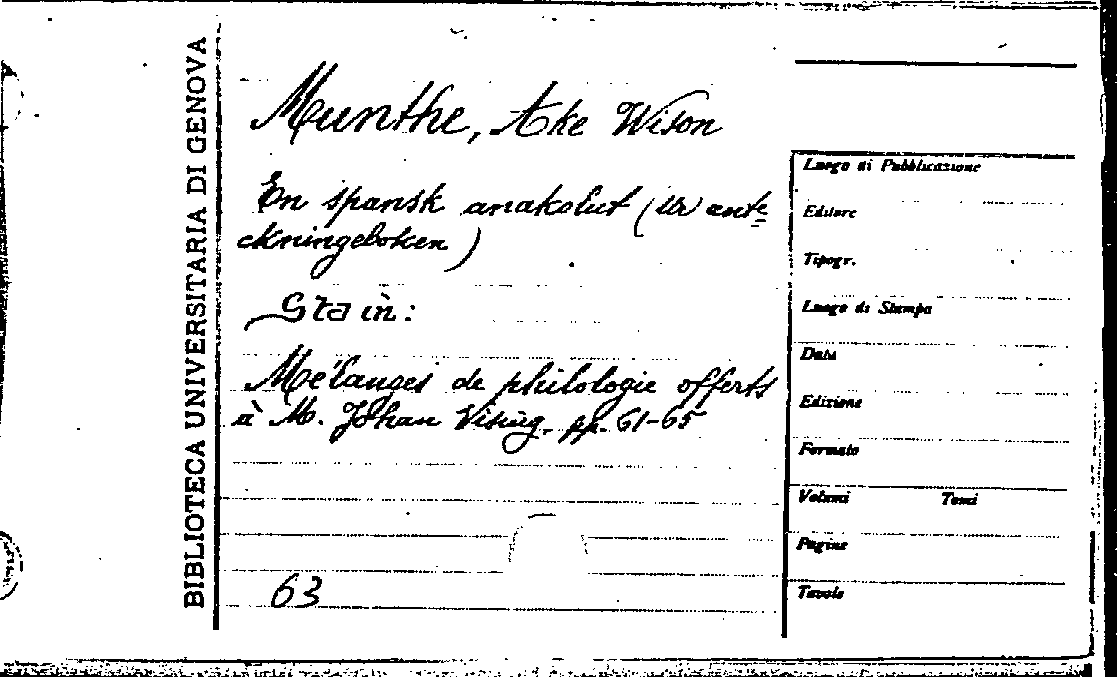 BIBLIOTECA UNIVERSITARIA DI GENOVA
Munthe, Ake Wison
En spansk anakolut (Ur ante
ckningeboken)
Sta in:
Mélanges de philologie offerts
à M. Johan Vising. pp. 61-65
63
Luogo di Pubblicazione
Editore
Tipogr.
Luogo di Stampa
Data
Edizione
Formato
Volumi Tomi
Pagine
Tavole